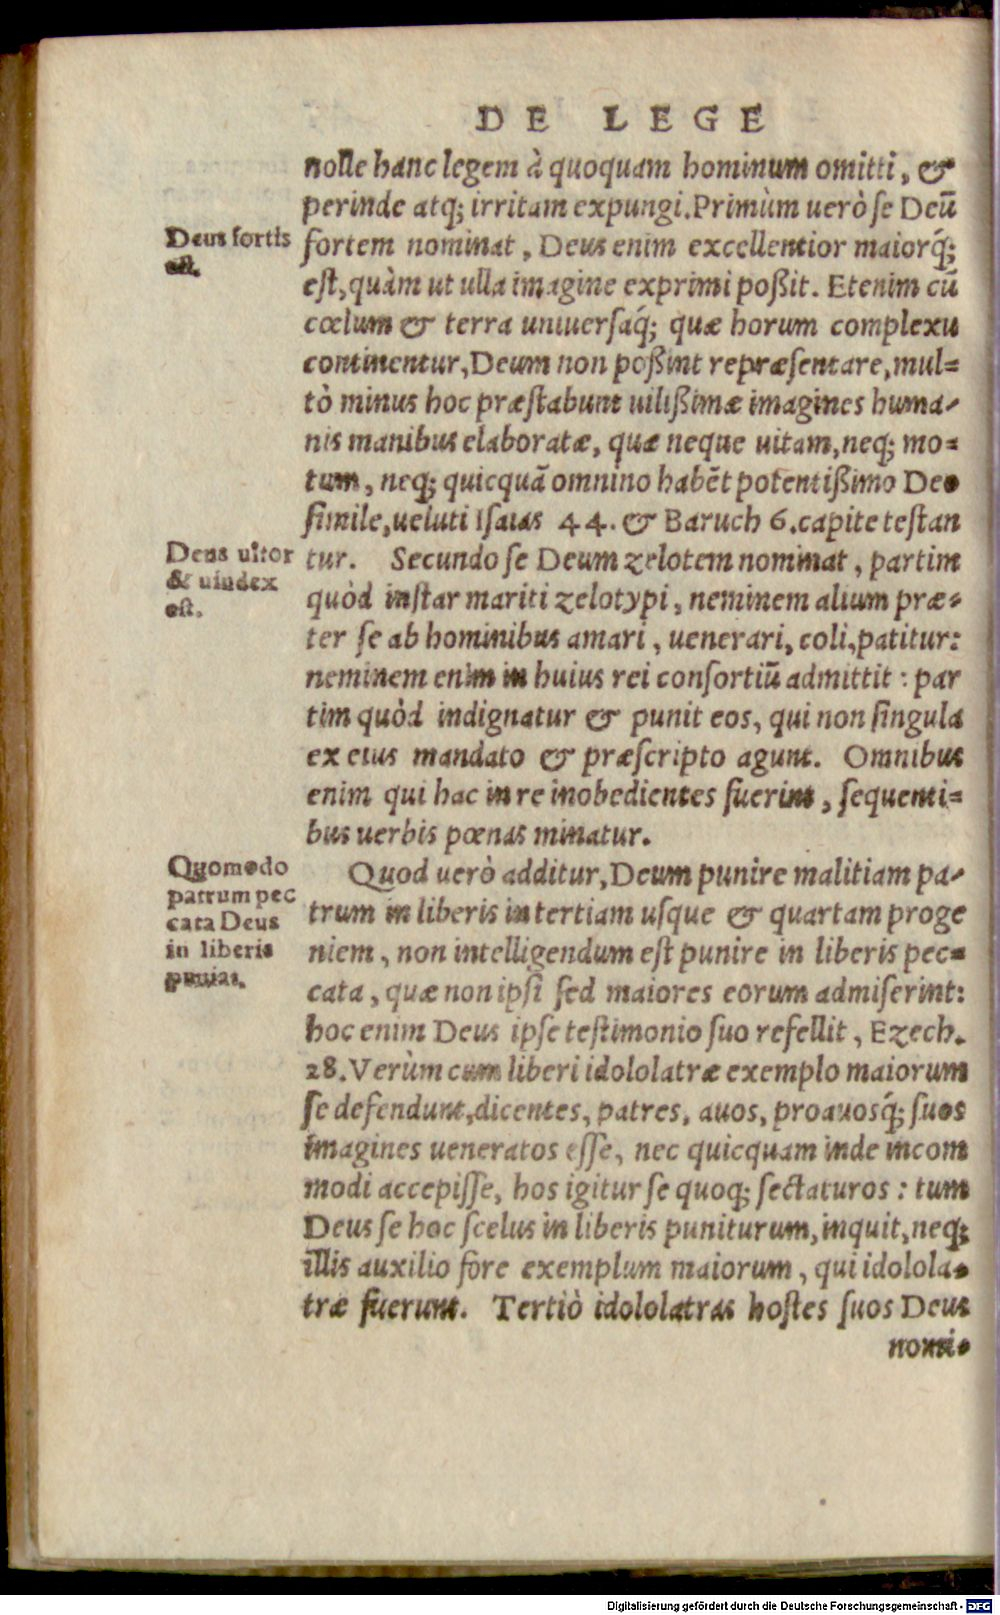 DE LEGE
nolle hanc legem à quoquam hominum omitti, &
perinde atq; irritam expungi. Primùm uerò se Deū
Deus fortis
est.
fortem nominat, Deus enim excellentior maiorq́;
est, quàm ut ulla imagine exprimi poßit. Etenim cū
cœlum & terra uniuersaq́; quæ horum complexu
continentur, Deum non poßint repræsentare, mul-
tò minus hoc præstabunt uilißimæ imagines huma-
nis manibus elaboratæ, quæ neque uitam, neq; mo-
tum, neq; quicquā omnino habēt potentißimo Deo
simile, ueluti Isaias 44. & Baruch 6. capite testan
Deus ultor
& uindex
est.
tur. Secundo se Deum zelotem nominat, partim
quòd instar mariti zelotypi, neminem alium præ-
ter se ab hominibus amari, uenerari, coli, patitur:
neminem enim in huius rei consortiū admittit: par
tim quòd indignatur & punit eos, qui non singula
ex eius mandato & præscripto agunt. Omnibus
enim qui hac in re inobedientes fuerint, sequenti-
bus uerbis pœnas minatur.
Quomodo
patrum pec
cata Deus
in liberis
puniat.
Quod uerò additur, Deum punire malitiam pa-
trum in liberis in tertiam usque & quartam proge
niem, non intelligendum est punire in liberis pec-
cata, quæ non ipsi sed maiores eorum admiserint:
hoc enim Deus ipse testimonio suo refellit, Ezech.
28. Verùm cum liberi idololatræ exemplo maiorum
se defendunt, dicentes, patres, auos, proauosq́; suos
imagines ueneratos esse, nec quicquam inde incom
modi accepisse, hos igitur se quoq; sectaturos: tum
Deus se hoc scelus in liberis puniturum, inquit, neq;
illis auxilio fore exemplum maiorum, qui idolola-
træ fuerunt. Tertiò idololatras hostes suos Deus
nomi-
Digitalisierung gefördert durch die Deutsche Forschungsgemeinschaft - DFG